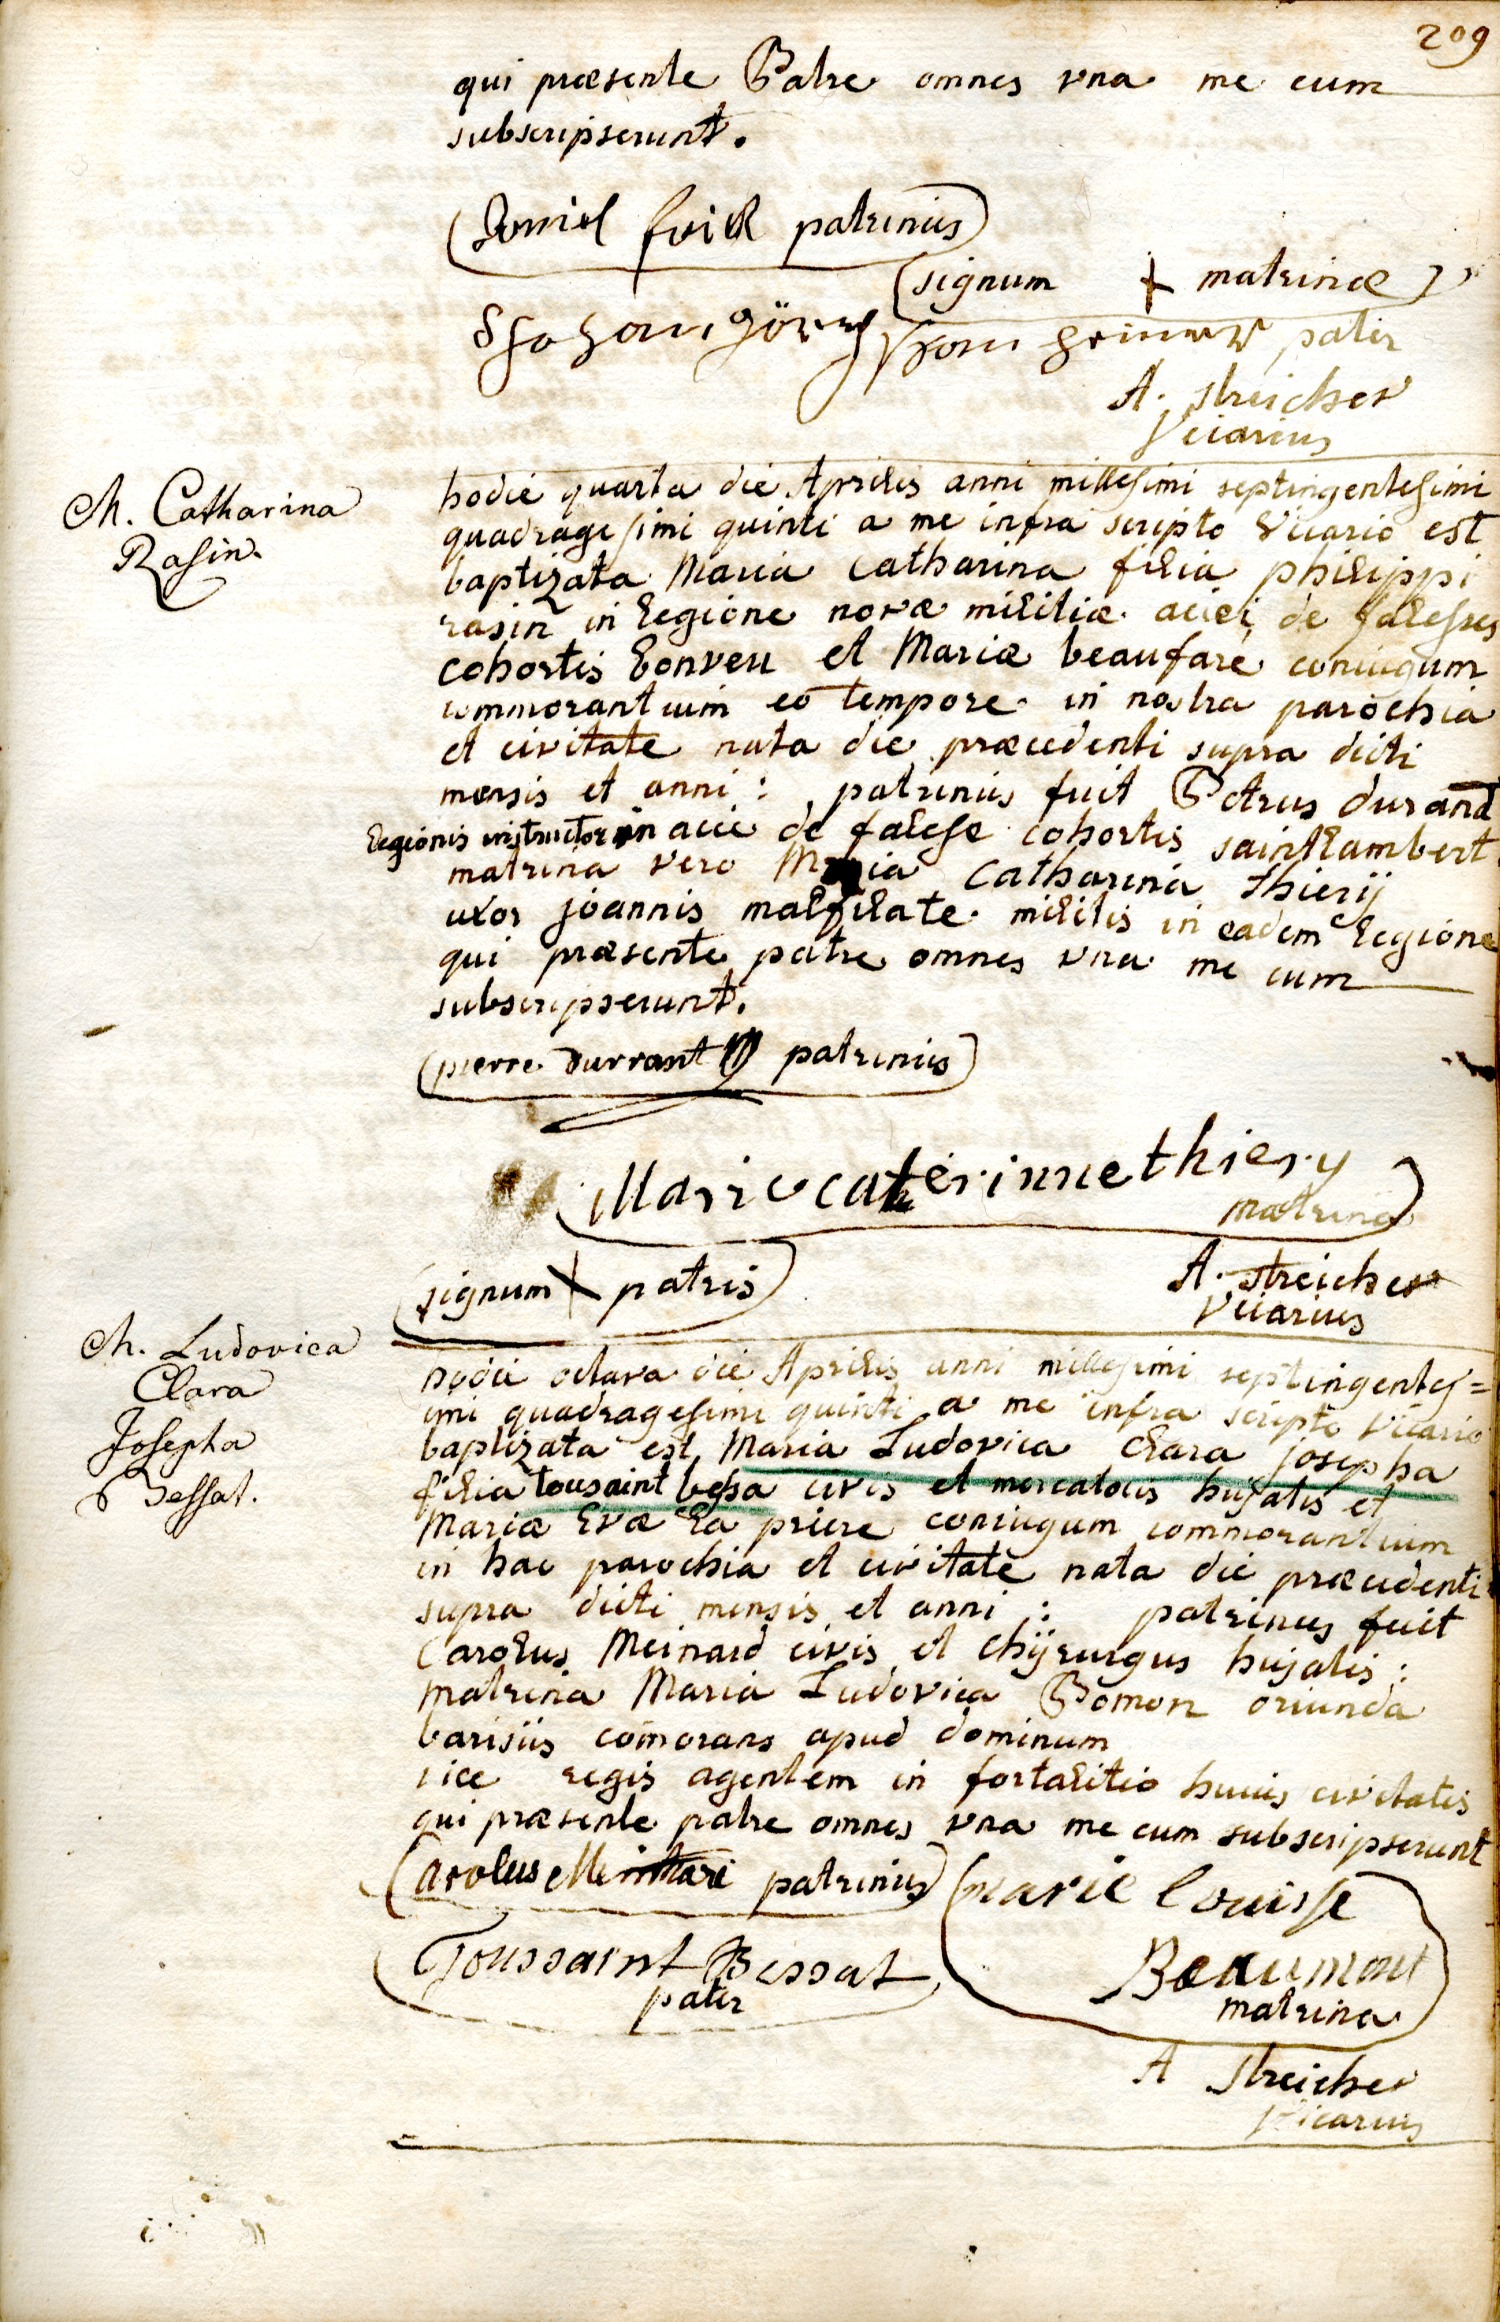 209
qui præsente Patre omnes vna me cum
subscripserunt.
Daniel frick patrinus
signum + matrinæ
pater
A. Streicher
Vicarius
M. Catharina
Rasin
hodie quarta die Aprilis anni millesimi septingentesimi
quadragesimi quinti a me infra scripto Vicario est
baptizata Maria Catharina filia philippi
rasin in legione novæ militiæ aciei de falesses
cohortis bonveu et Mariæ beaufare coniugum
commorantium eo tempore in nostra parochia
et civitate nata die præcedenti supra dicti
mensis et anni : patrinus fuit Petrus durand
legionis instructor in acie de falese cohortis saintlambert
matrina vero Maria Catharina thierij
uxor joannis malfilate militis in eadem legione
qui præsente patre omnes vna me cum
subscripserunt.
pierre durrant patrinus
Marie caterinne thiery
matrina
signum + patris
A. Streicher
Vicarius
M. Ludovica
Clara
Josepha
Bessat.
hodie octava die Aprilis anni millesimi septingentes=
imi quadragesimi quinti a me infra scripto vicario
baptizata est Maria Ludovica Clara josepha
filia tousaint bessa civis et mercatoris hujatis et
Mariæ Evæ la priere coniugum commorantium
in hac parochia et civitate nata die præcedenti
supra dicti mensis et anni : patrinus fuit
Carolus Meinard civis et chijrurgus hujatis :
matrina Maria Ludovica Bomon oriunda
barisiis com̄orans apud dominum
vice regis agentem in fortalitio huius civitatis
qui præsente patre omnes vna me cum subscripserunt
Carolus patrinus
marie louisse
Beaumont
matrina
Toussaint Bessat
pater
A Streicher
Vicarius